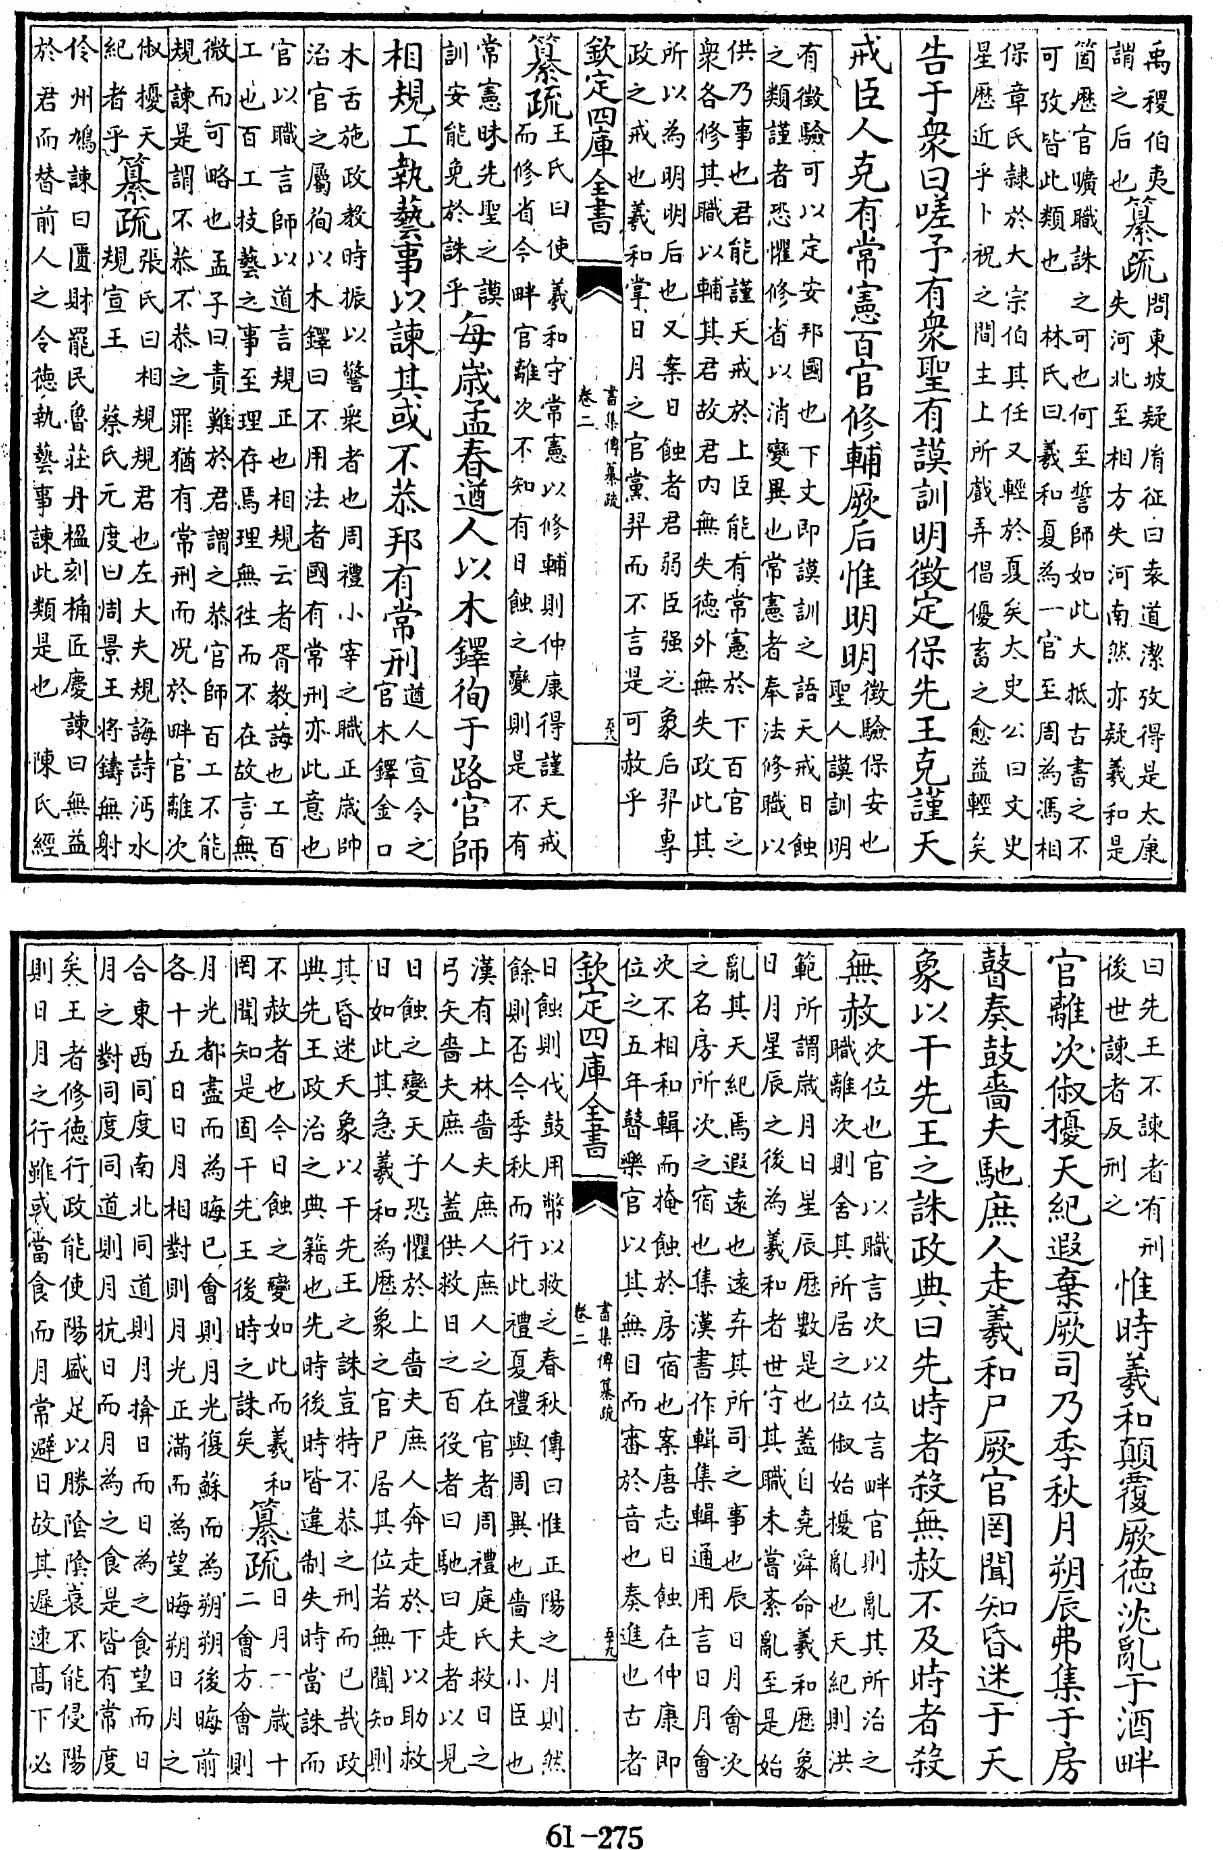 禹稷伯夷
謂之后也纂疏問東坡疑胤征曰袁道潔攷得是太康
失河北至相方失河南然亦疑羲和是
箇厯官曠職誅之可也何至誓師如此大抵古書之不
可攷皆此類也　林氏曰羲和夏為一官至周為馮相
保章氏隷於大宗伯其任又輕於夏矣太史公曰文史
星厯近乎卜祝之間主上所戲弄倡優畜之愈益輕矣
告于衆曰嗟予有衆聖有謨訓明徵定保先王克謹天
戒臣人克有常憲百官修輔厥后惟明明徵驗保安也
聖人謨訓明
有徵驗可以定安邦國也下文即謨訓之語天戒日蝕
之類謹者恐懼修省以消變異也常憲者奉法修職以
供乃事也君能謹天戒於上臣能有常憲於下百官之
衆各修其職以輔其君故君内無失德外無失政此其
所以為明明后也又案日蝕者君弱臣强之象后羿專
政之戒也羲和掌日月之官黨羿而不言是可赦乎
欽定四庫全書
書集傳纂疏
卷二
五十八
纂疏王氏曰使羲和守常憲以修輔則仲康得謹天戒
而修省今畔官離次不知有日蝕之變則是不有
常憲昧先聖之謨
訓安能免於誅乎每歲孟春遒人以木鐸徇于路官師
相規工執藝事以諫其或不恭邦有常刑遒人宣令之
官木鐸金口
木舌施政教時振以警衆者也周禮小宰之職正歳帥
治官之屬徇以木鐸曰不用法者國有常刑亦此意也
官以職言師以道言規正也相規云者胥教誨也工百
工也百工技藝之事至理存焉理無往而不在故言無
微而可略也孟子曰責難於君謂之恭官師百工不能
規諫是謂不恭不恭之罪猶有常刑而况於畔官離次
俶擾天
紀者乎纂疏張氏曰相規規君也左大夫規誨詩沔水
規宣王　蔡氏元度曰周景王將鑄無射
伶州鳩諫曰匱財罷民魯莊丹楹刻桷匠慶諫曰無益
於君而替前人之令德執藝事諫此類是也　陳氏經
曰先王不諫者有刑
後世諫者反刑之惟時羲和顛覆厥德沈亂于酒畔
官離次俶擾天紀遐棄厥司乃季秋月朔辰弗集于房
瞽奏鼓嗇夫馳庶人走羲和尸厥官罔聞知昏迷于天
象以干先王之誅政典曰先時者殺無赦不及時者殺
無赦次位也官以職言次以位言畔官則亂其所治之
職離次則舍其所居之位俶始擾亂也天紀則洪
範所謂歳月日星辰厯數是也蓋自堯舜命羲和厯象
日月星辰之後為羲和者世守其職未嘗紊亂至是始
亂其天紀焉遐遠也遠弃其所司之事也辰日月會次
之名房所次之宿也集漢書作輯集輯通用言日月會
次不相和輯而掩蝕於房宿也案唐志日蝕在仲康即
位之五年瞽樂官以其無目而審於音也奏進也古者
欽定四庫全書
書集傳纂疏
卷二
五十九
日蝕則伐鼓用幣以救之春秋傳曰惟正陽之月則然
餘則否今季秋而行此禮夏禮與周異也嗇夫小臣也
漢有上林嗇夫庶人庶人之在官者周禮庭氏救日之
弓矢嗇夫庶人蓋供救日之百役者曰馳曰走者以見
日蝕之變天子恐懼於上嗇夫庶人奔走於下以助救
日如此其急羲和為厯象之官尸居其位若無聞知則
其昏迷天象以干先王之誅豈特不恭之刑而已哉政
典先王政治之典籍也先時後時皆違制失時當誅而
不赦者也今日蝕之變如此而羲和
罔聞知是固干先王後時之誅矣纂疏日月一歳十
二會方會則
月光都盡而為晦已會則月光復蘇而為朔朔後晦前
各十五日日月相對則月光正滿而為望晦朔日月之
合東西同度南北同道則月揜日而日為之食望而日
月之對同度同道則月抗日而月為之食是皆有常度
矣王者修德行政能使陽盛足以勝陰陰衰不能侵陽
則日月之行雖或當食而月常避日故其遲速高下必
61-275